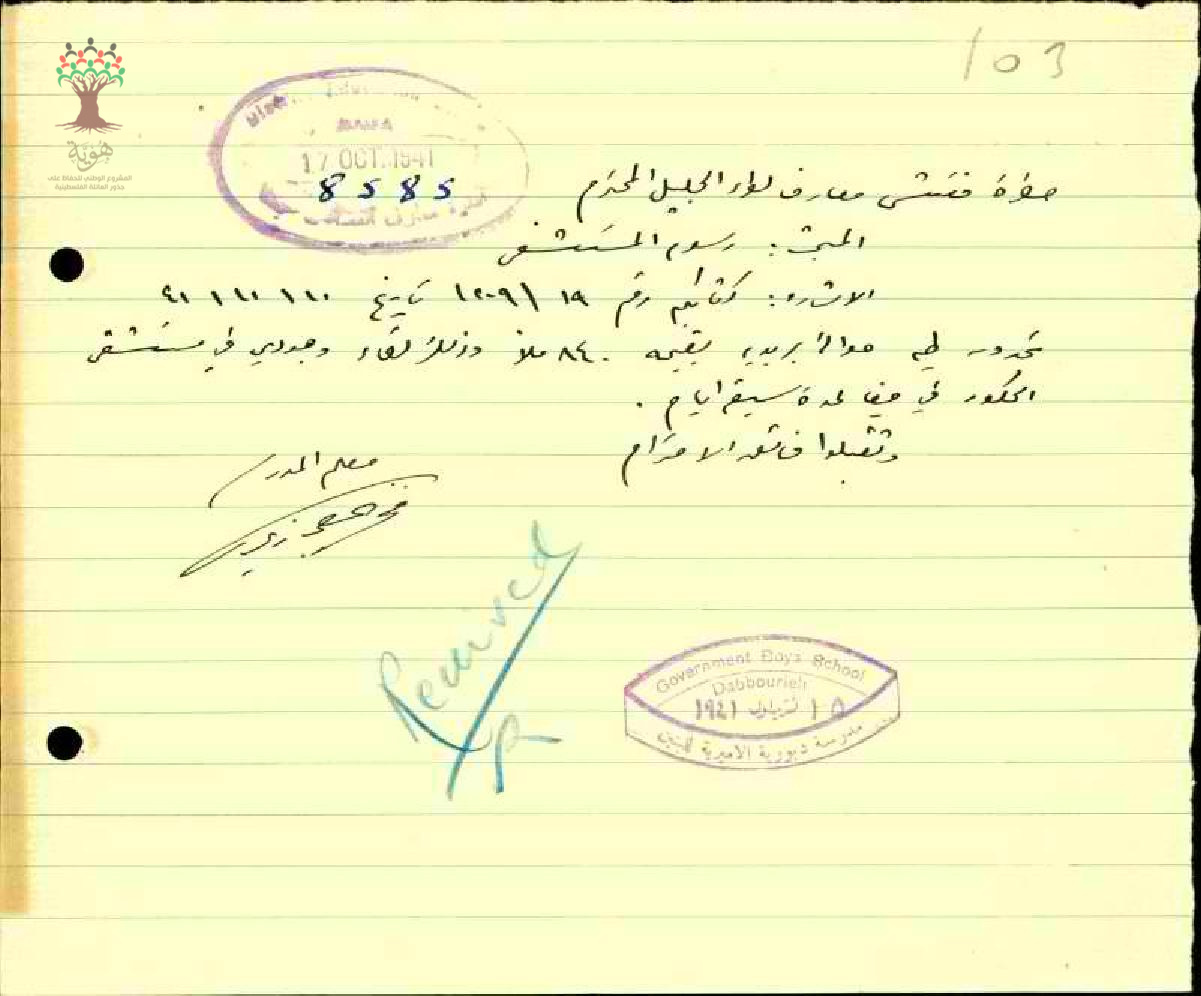 103
هوية
المشروع الوطني للحفاظ على
جذور العائلة الفلسطينية
17 OCT. 1941
8585
حضرة مفتش معارف لواء الجليل المحترم
المبحث: رسوم المستشفى
الاشارة: كتابكم رقم ١٩ / ١٢٠٩ تاريخ ١٠ / ١٠ / ٤١
تجدون طيه حوالة بريدية بقيمة ٨٤٠ ملا وذلك لقاء وجودي في مستشفى
الحكومة في حيفا لمدة سبعة ايام .
وتقبلوا فائق الاحترام
معلم المدرسة
Received
R
Government Boys School
Dabbourieh
١٥ تشرين اول ١٩٤١
مدرسة دبورية الاميرية للبنين